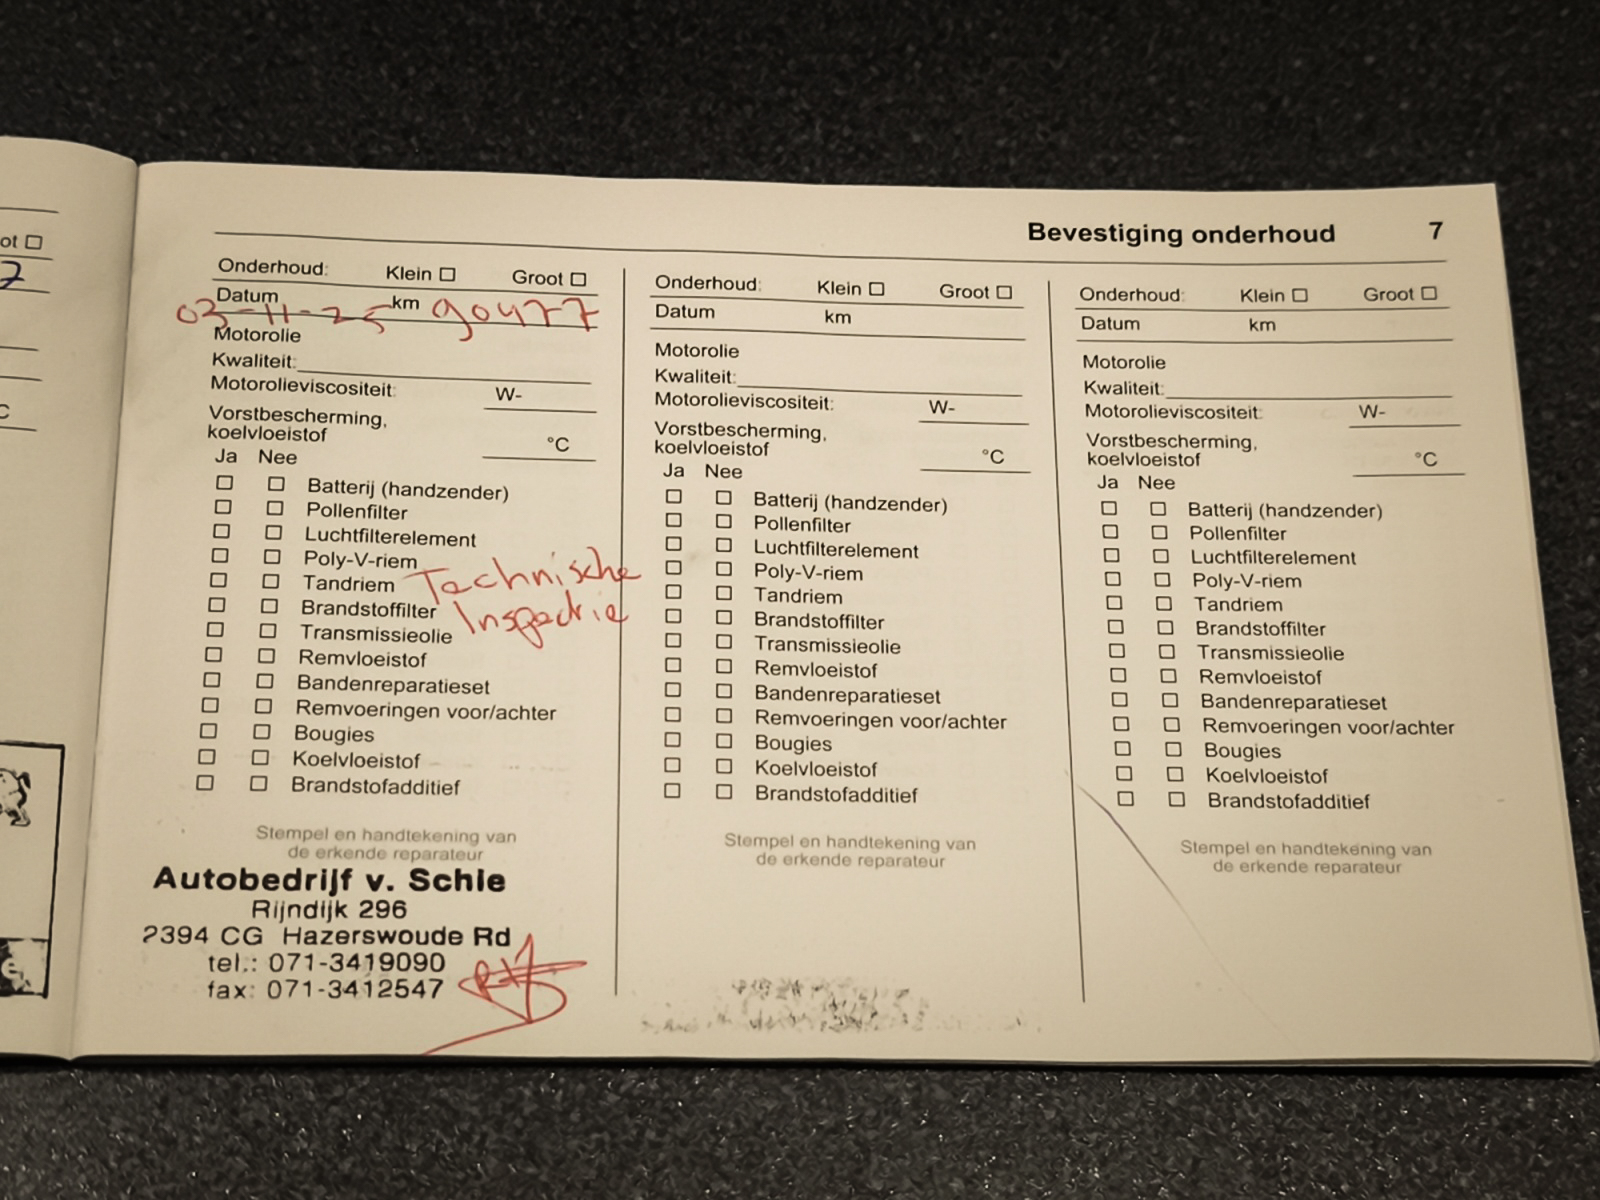 ot
7
C
e
Bevestiging onderhoud 7
Onderhoud: Klein Groot
Datum km
03-11-25 90477
Motorolie
Kwaliteit:
Motorolieviscositeit: W-
Vorstbescherming,
koelvloeistof °C
Ja Nee
Batterij (handzender)
Pollenfilter
Luchtfilterelement
Poly-V-riem
Tandriem Technische
Brandstoffilter Inspectie
Transmissieolie
Remvloeistof
Bandenreparatieset
Remvoeringen voor/achter
Bougies
Koelvloeistof
Brandstofadditief
Stempel en handtekening van
de erkende reparateur
Autobedrijf v. Schie
Rijndijk 296
2394 CG Hazerswoude Rd
tel.: 071-3419090
fax: 071-3412547
Onderhoud: Klein Groot
Datum km
Motorolie
Kwaliteit:
Motorolieviscositeit: W-
Vorstbescherming,
koelvloeistof °C
Ja Nee
Batterij (handzender)
Pollenfilter
Luchtfilterelement
Poly-V-riem
Tandriem
Brandstoffilter
Transmissieolie
Remvloeistof
Bandenreparatieset
Remvoeringen voor/achter
Bougies
Koelvloeistof
Brandstofadditief
Stempel en handtekening van
de erkende reparateur
Onderhoud: Klein Groot
Datum km
Motorolie
Kwaliteit:
Motorolieviscositeit: W-
Vorstbescherming,
koelvloeistof °C
Ja Nee
Batterij (handzender)
Pollenfilter
Luchtfilterelement
Poly-V-riem
Tandriem
Brandstoffilter
Transmissieolie
Remvloeistof
Bandenreparatieset
Remvoeringen voor/achter
Bougies
Koelvloeistof
Brandstofadditief
Stempel en handtekening van
de erkende reparateur